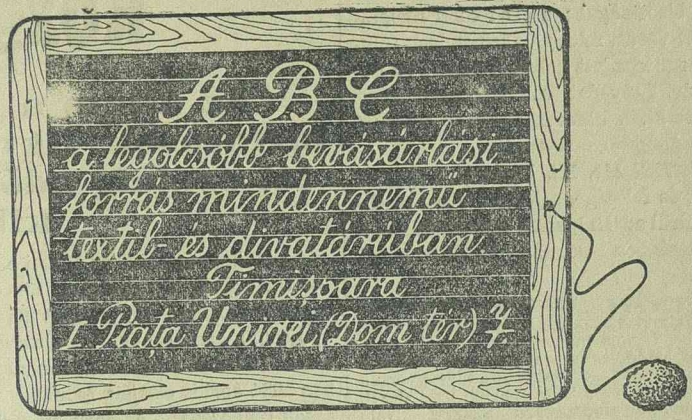 A B C
a legolcsóbb bevásárlási
forrás mindennemű
textil- és divatárúban
Timișoara
I. Piața Unirei (Dom tér) 7.